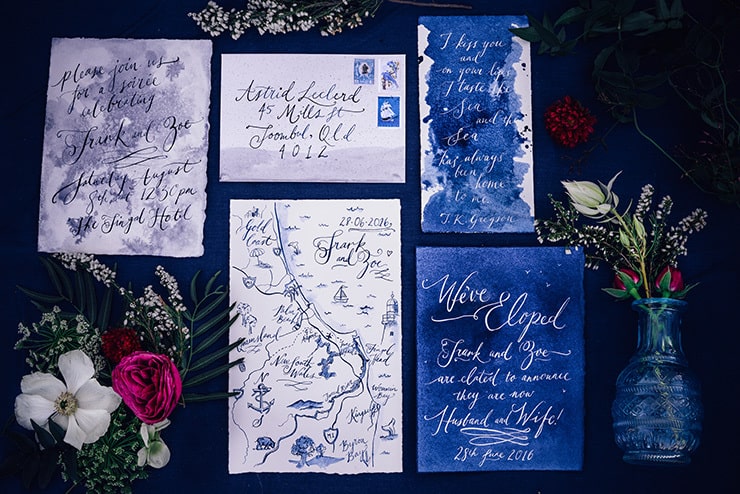 please join us
for a soirée
celebrating
Frank and Zoe
Saturday August
8th, at 12:30pm
The Fingal Hotel
Astrid Leclerd
45 Mills St
Toombul, Qld
4012
I kiss you
and
on your lips
I taste the
Sea
and the
Sea
has always
been
home
to me.
T.K. Gregson
28-06-2016,
Frank
and Zoe
Gold
Coast
Palm
Beach
Queensland
New South
Wales
Tweed
Head
Kingscliff
Byron
Bay
M1
N
We've Eloped
Frank and Zoe
are elated to announce
they are now
Husband and Wife!
28th June 2016